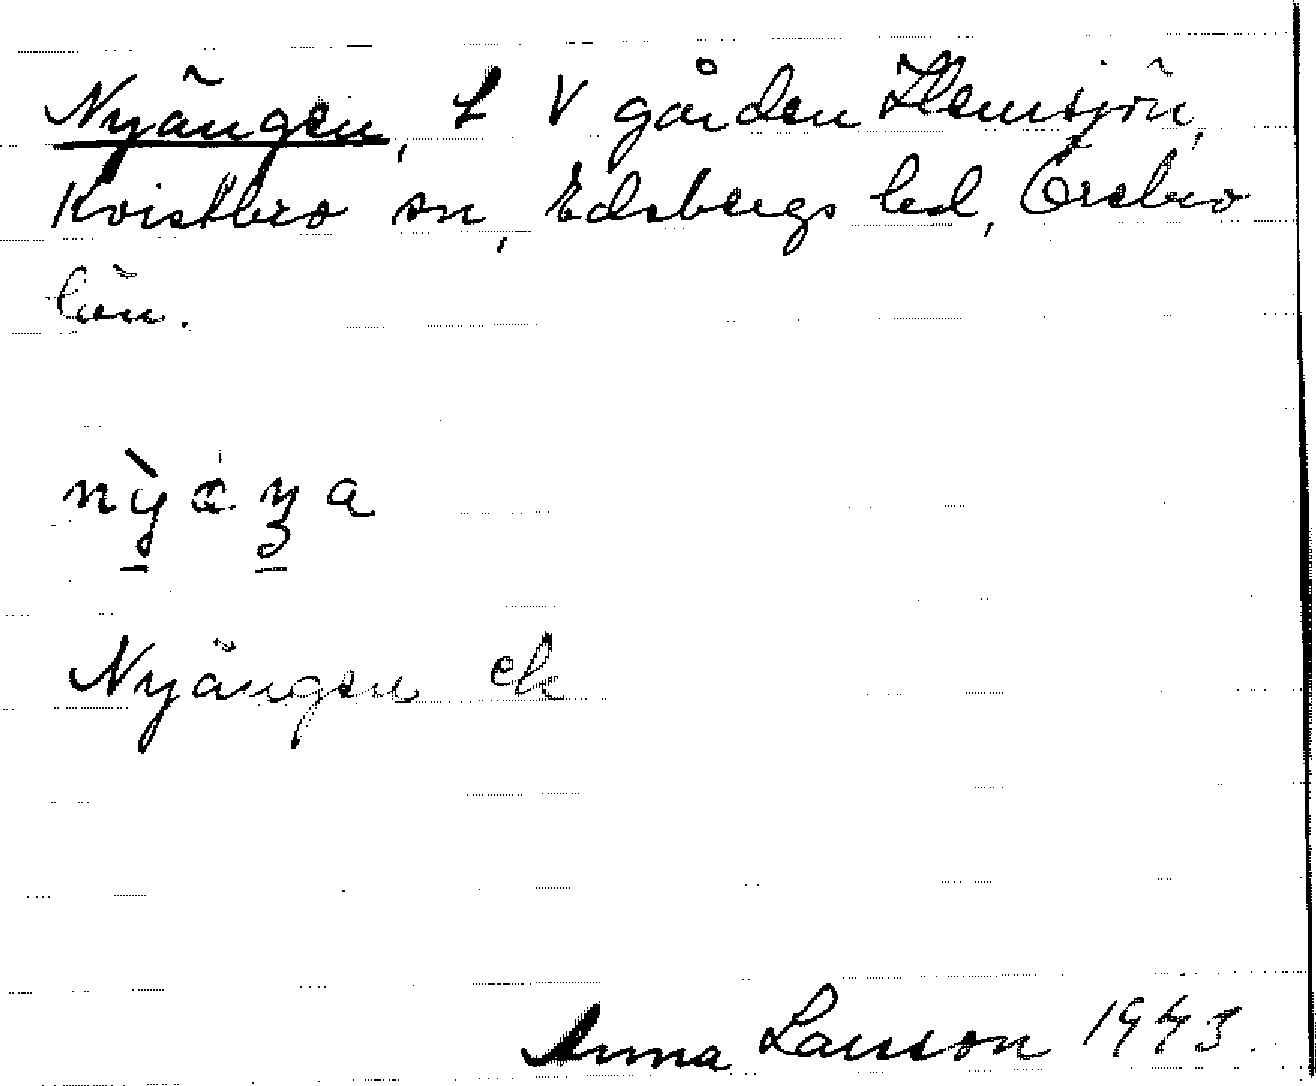 Nyängen, L V gården Hemsjön,
Kvistbro sn, Edsbergs hd, Örebro
län.
nỳæŋa
Nyängen ek
Anna Larsson 1943.